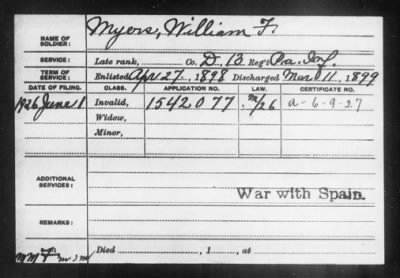 NAME OF SOLDIER: Myers, William F.
SERVICE: Late rank, Co. D, 13 Reg't Pa. Inf.
TERM OF SERVICE: Enlisted Apr 27, 1898 Discharged Mar 11, 1899
DATE OF FILING. CLASS. APPLICATION NO. LAW. CERTIFICATE NO.
1926 June 1 Invalid, 1542,077 A-6-9-27
Widow,
Minor,
ADDITIONAL SERVICES:
War with Spain.
REMARKS:
Died , 1 , at